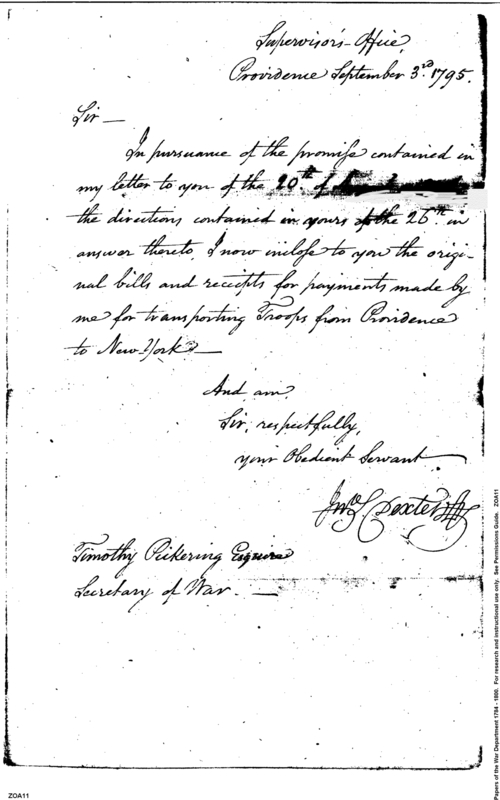 Supervisor's Office,
Providence September 3rd. 1795.
Sir —
In pursuance of the promise contained in
my letter to you of the 20th. of
the directions contained in yours of the 26th. in
answer thereto, I now inclose to you the origi-
nal bills and receipts for payments made by
me for transporting Troops from Providence
to New-York. —
And am,
Sir, respectfully,
your Obedient Servant
Jno. S. Dexter
Timothy Pickering Esquire
Secretary of War. —
Papers of the War Department 1784 - 1800. For research and instructional use only. See Permissions Guide. ZOA11
ZOA11